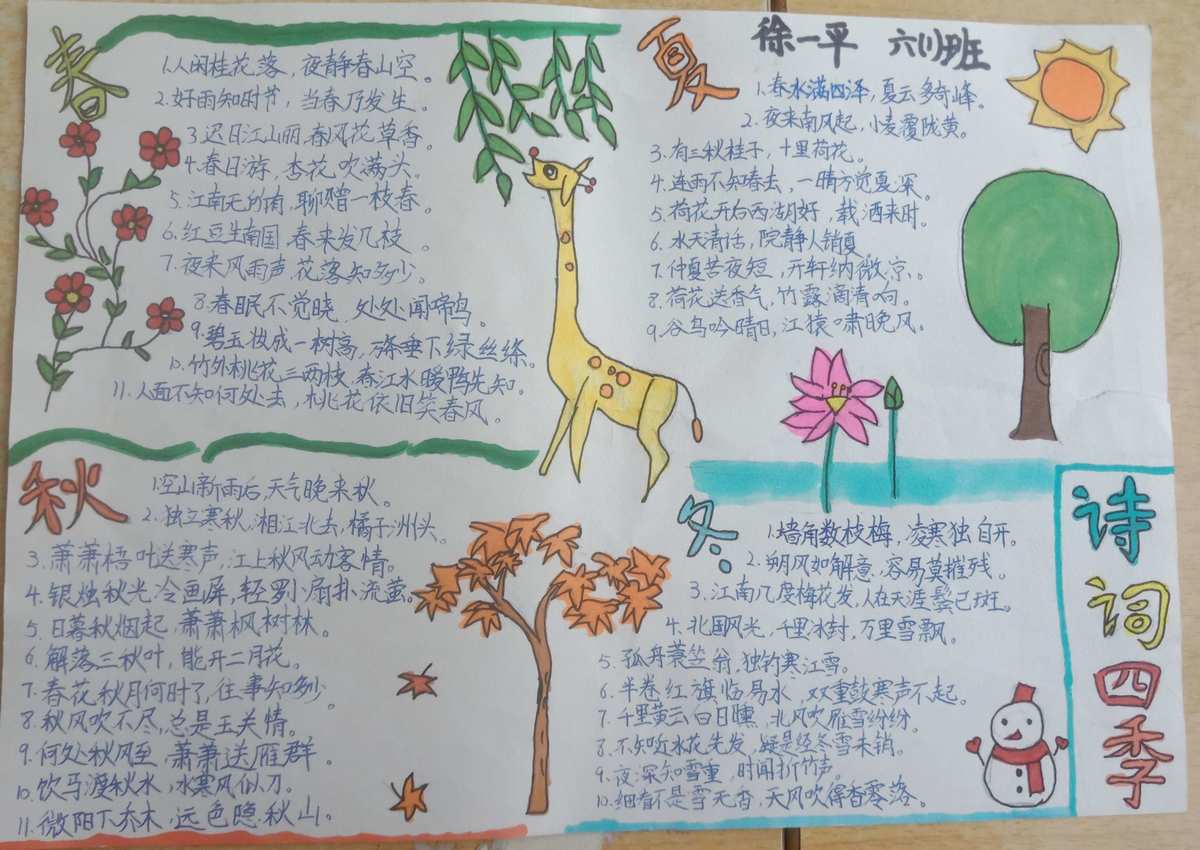 春
1.人闲桂花落，夜静春山空。
2.好雨知时节，当春乃发生。
3.迟日江山丽，春风花草香。
4.春日游，杏花吹满头。
5.江南无所有，聊赠一枝春。
6.红豆生南国，春来发几枝。
7.夜来风雨声，花落知多少。
8.春眠不觉晓，处处闻啼鸟。
9.碧玉妆成一树高，万条垂下绿丝绦。
10.竹外桃花三两枝，春江水暖鸭先知。
11.人面不知何处去，桃花依旧笑春风。
夏
徐一平 六(1)班
1.春水满四泽，夏云多奇峰。
2.夜来南风起，小麦覆陇黄。
3.有三秋桂子，十里荷花。
4.连雨不知春去，一晴方觉夏深。
5.荷花开后西湖好，载酒来时。
6.水天清话，院静人销夏
7.仲夏苦夜短，开轩纳微凉。
8.荷花送香气，竹露滴清响。
9.谷鸟吟晴日，江猿啸晚风。
秋
1.空山新雨后，天气晚来秋。
2.独立寒秋，湘江北去，橘子洲头。
3.萧萧梧叶送寒声，江上秋风动客情。
4.银烛秋光冷画屏，轻罗小扇扑流萤。
5.日暮秋烟起，萧萧枫树林。
6.解落三秋叶，能开二月花。
7.春花秋月何时了，往事知多少。
8.秋风吹不尽，总是玉关情。
9.何处秋风至，萧萧送雁群。
10.饮马渡秋水，水寒风似刀。
11.微阳下乔木，远色隐秋山。
冬
1.墙角数枝梅，凌寒独自开。
2.朔风如解意，容易莫摧残。
3.江南几度梅花发，人在天涯鬓已斑。
4.北国风光，千里冰封，万里雪飘。
5.孤舟蓑笠翁，独钓寒江雪。
6.半卷红旗临易水，双重鼓寒声不起。
7.千里黄云白日曛，北风吹雁雪纷纷。
8.不知近水花先发，疑是经冬雪未销。
9.夜深知雪重，时闻折竹声。
10.细看不是雪无香，天风吹得香零落。
诗词四季